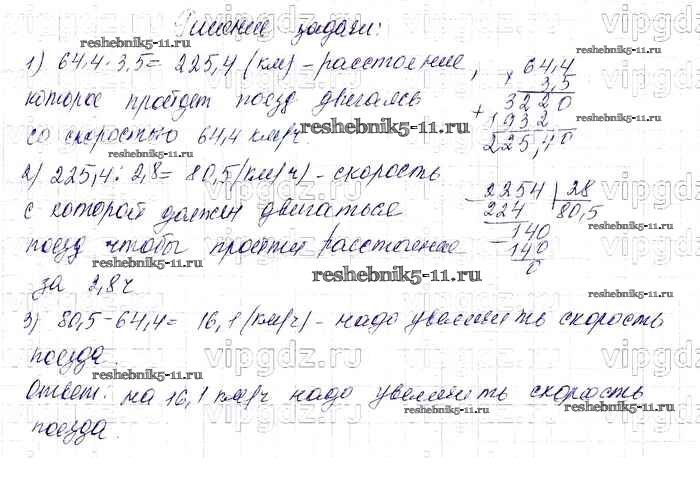 Решение задачи:
1) 64,4·3,5= 225,4 (км) - расстояние,
которое пройдет поезд двигаясь
со скоростью 64,4 км/ч.
× 64,4
3,5
+ 3220
1932
225,40
2) 225,4 : 2,8= 80,5 (км/ч) - скорость
с которой должен двигаться
поезд чтобы пройти расстояние
за 2,8ч
2254 | 28
224 80,5
140
140
0
3) 80,5-64,4= 16,1 (км/ч) - надо увеличить скорость
поезда.
Ответ: на 16,1 км/ч надо увеличить скорость
поезда.
reshebnik5-11.ru
vipgdz.ru